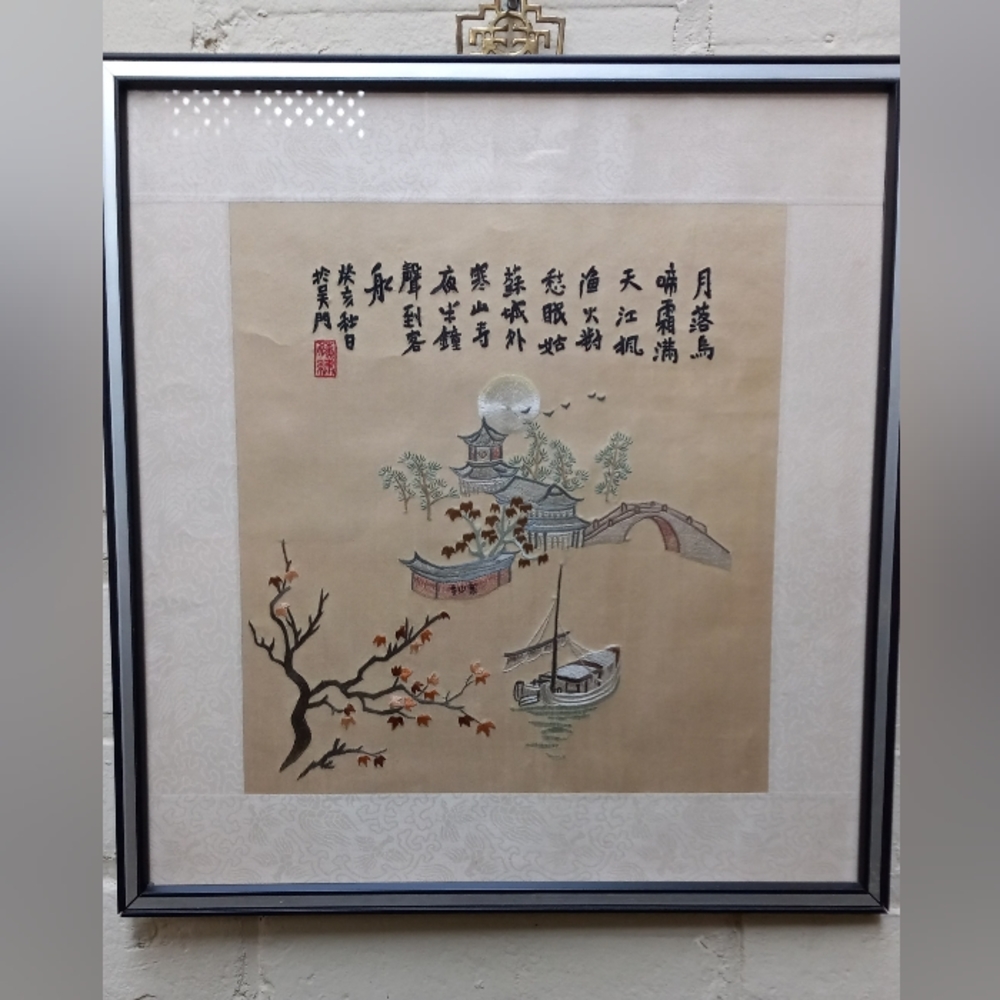 月落烏
啼霜滿
天江楓
漁火對
愁眠姑
蘇城外
寒山寺
夜半鐘
聲到客
船
癸亥秋日
於吳門
寒山寺